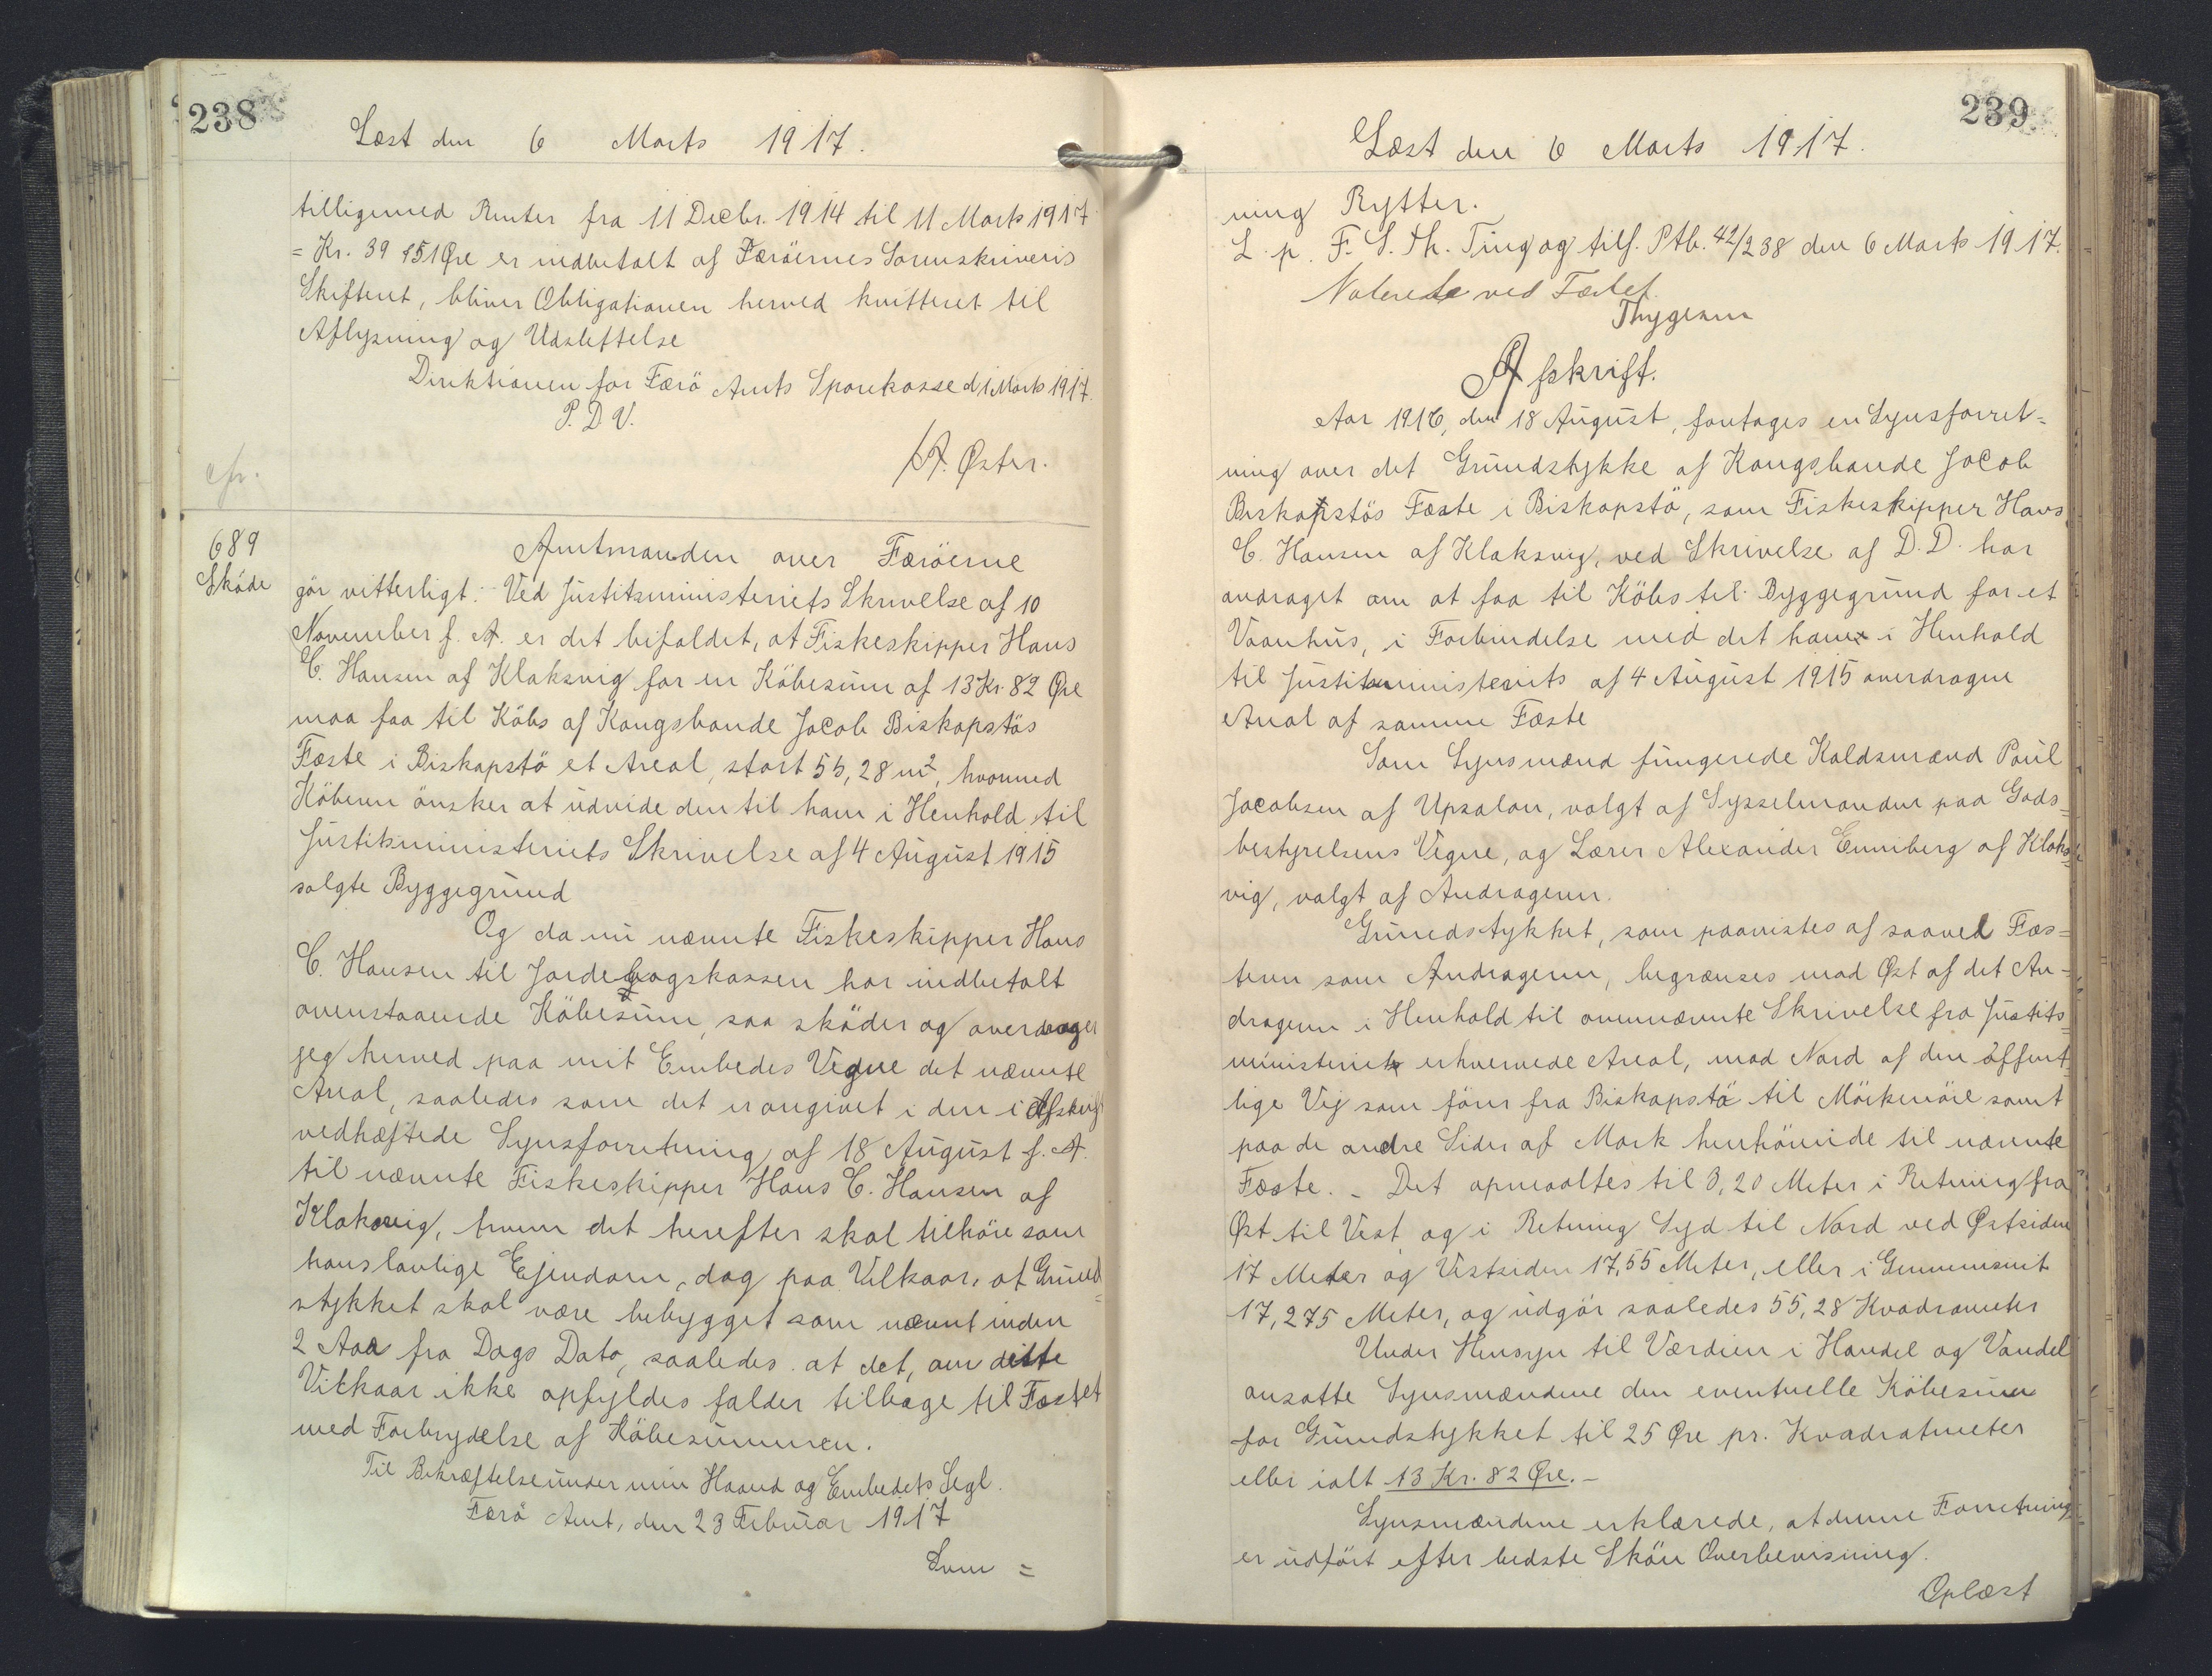 238
Læst den 6 Marts 1917.
tilligemed Renter fra 11 Decbr. 1914 til 11 Marts 1917
= Kr. 39 51 Øre er indbetalt af Færöernes Sorenskriveris
Skifteret, bliver Obligationen herved kvitteret til
Aflysning og Udslettelse
Direktionen for Færö Amts Sparekasse d 1 Marts 1917.
P. D. V.
A. Øster.
cfr.
689
Skøde
Amtmanden over Færöerne
gör vitterligt: Ved Justitsministeriets Skrivelse af 10
November f. A. er det bifaldet, at Fiskeskipper Hans
C. Hansen af Klaksvig for en Köbesum af 13 Kr. 82 Øre
maa faa til Köbs af Kongsbonde Jacob Biskopstös
Fæste i Biskopstö et Areal, stort 55,28 m², hvormed
Köberen önsker at udvide den til ham i Henhold til
Justitsministeriets Skrivelse af 4 August 1915
solgte Byggegrund
Og da nu nævnte Fiskeskipper Hans
C. Hansen til Jordebogskassen har indbetalt
ovenstaaende Köbesum, saa sköder og overdrager
jeg herved paa mit Embedes Vegne det nævnte
Areal, saaledes som det er angivet i den i Afskrift
vedhæftede Synsforretning af 18 August f. A.
til nævnte Fiskeskipper Hans C. Hansen af
Klaksvig, hvem det herefter skal tilhöre som
hans lovlige Ejendom, dog paa Vilkaar, at Grund=
stykket skal være bebygget som nævnt inden
2 Aar fra Dags Dato, saaledes at det, om dette
Vilkaar ikke opfyldes falder tilbage til Fæstet
med Forbrydelse af Köbesummen.
Til Bekræftelse under min Haand og Embedets Segl.
Færö Amt, den 23 Februar 1917
Svenn =
239
Læst den 6 Marts 1917.
ning Rytter.
L. p. F. S. Th. Ting og tilf. Ptb. 42/238 den 6 Marts 1917.
Noterede ved Fæstet.
Thygesen
Afskrift.
Aar 1916, den 18 August, foretages en Synsforret=
ning over det Grundstykke af Kongsbonde Jacob
Biskopstös Fæste i Biskopstö, som Fiskeskipper Hans
C. Hansen af Klaksvig, ved Skrivelse af D. D. har
andraget om at faa til Köbs til Byggegrund for et
Vaanhus, i Forbindelse med det ham i Henhold
til Justitsministeriets af 4 August 1915 overdragne
Areal af samme Fæste
Som Synsmænd fungerede Koldsmænd Poul
Jacobsen af Upsalon, valgt af Sysselmanden paa Gods=
bestyrelsens Vegne, og Lærer Alexander Enniberg af Klaks=
vig, valgt af Andrageren.
Grundstykket, som paavistes af saavel Fæs=
teren som Andrageren, begrænses mod Øst af det An=
drageren i Henhold til ovennævnte Skrivelse fra Justits=
ministeriet erhvervede Areal, mod Nord af den offent=
lige Vej som förer fra Biskopstö til Mörkenöre samt
paa de andre Sider af Mark henhörende til nævnte
Fæste. - Det opmaaltes til 3,20 Meter i Retning fra
Øst til Vest og i Retning Syd til Nord ved Østsiden
17 Meter og Vestsiden 17,55 Meter, eller i Gennemsnit
17,275 Meter, og udgör saaledes 55,28 Kvadrameter
Under Hensyn til Værdien i Handel og Vandel
ansatte Synsmændene den eventuelle Köbesum
for Grundstykket til 25 Øre pr. Kvadratmeter
eller ialt 13 Kr. 82 Øre. -
Synsmændene erklærede, at denne Forretning
er udfört efter bedste Skön Overbevisning.
Oplæst